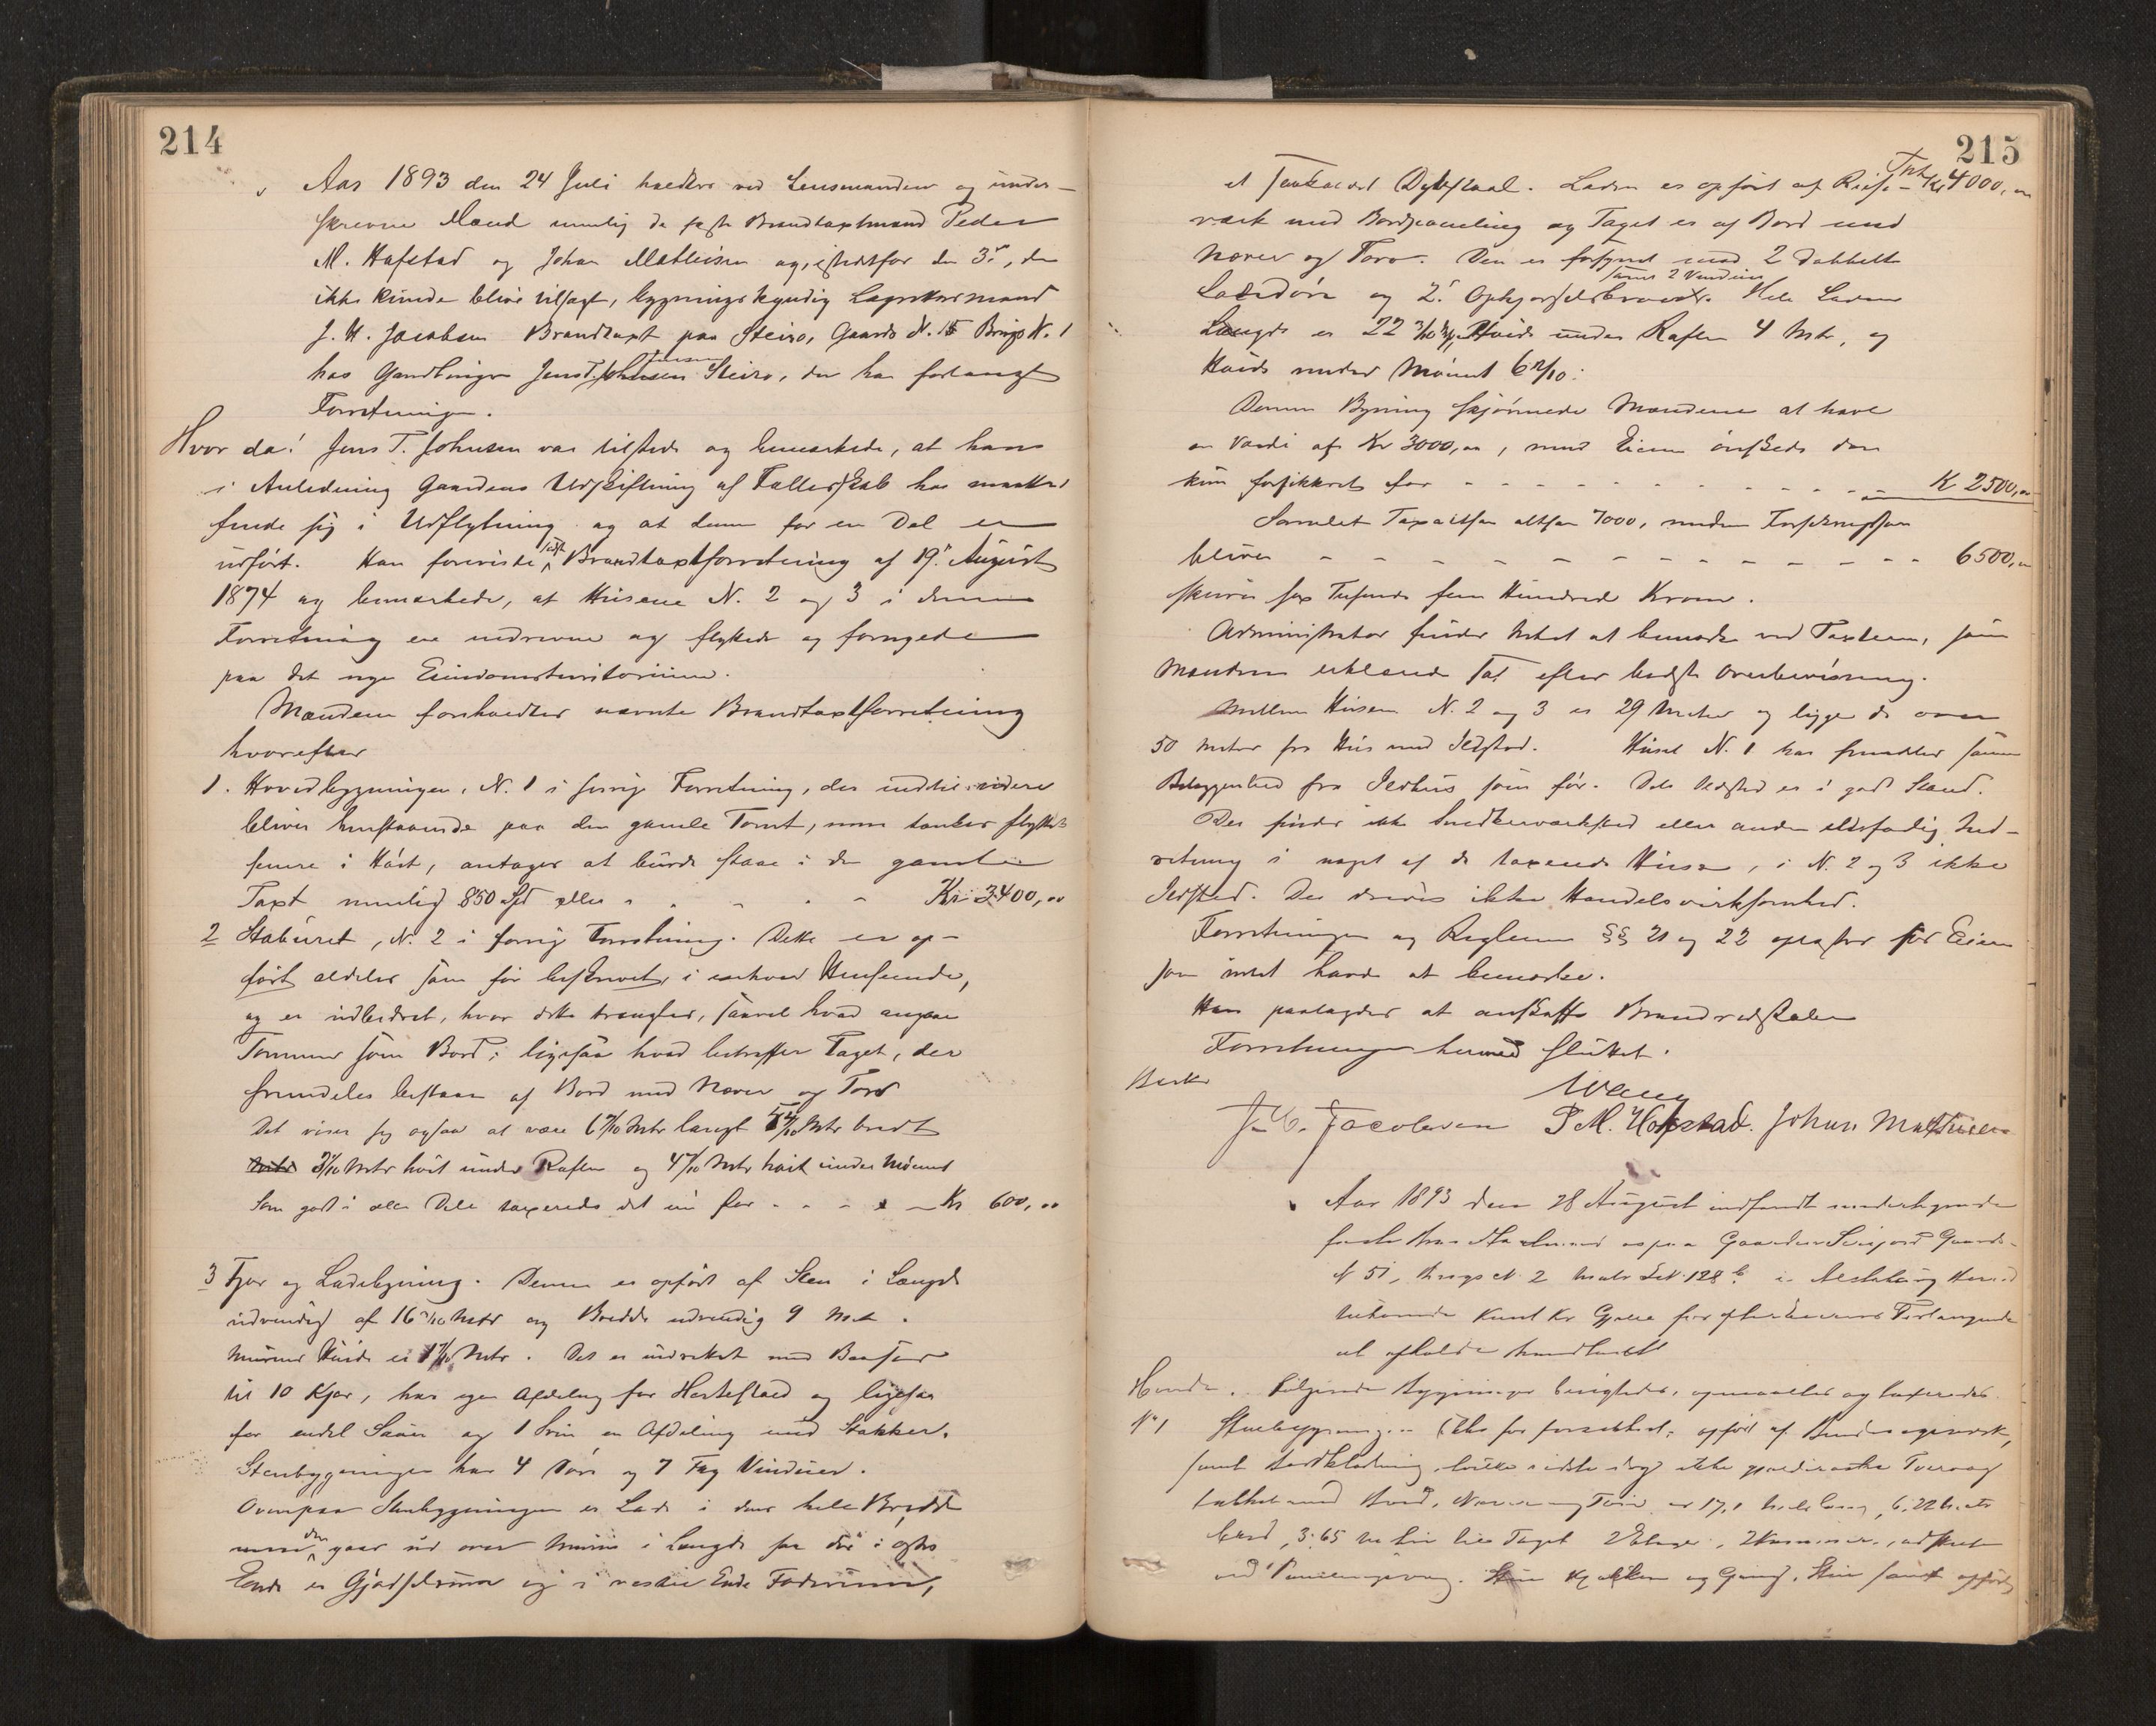 214
Aar 1893 den 24 Juli holdtes ved Lensmanden og under-
skrevne Mænd nemlig de faste Brandtaxtmænd Peder
M. Hafstad og Johan Mathisen og, istedetfor den 3die, der
ikke kunde blive tilsagt, bygningskyndig Lagrettesmand
J. H. Jacobsen Brandtaxt paa Steiro, Gaards N. 15 Brugs N. 1
hos Gaardbruger Jens T. Johnsen Steiro, der har forlangt
Forretningen.
Hvor da! Jens T. Johnsen var tilstede og bemærkede, at han
i Anledning Gaardens Udskiftning af Fællesskab har maattet
finde sig i Udflytning og at denne for en Del er
udført. Han foreviste sidste Brandtaxtforretning af 19. August
1874 og bemærkede, at Husene N. 2 og 3 i denne
Forretning ere nedrevne og flyttede og fornyede
paa det nye Eiendomsterritorium.
Mændene foreholdtes nævnte Brandtaxtforretning
hvorefter
1. Hovedbygningen, N. 1 i forrige Forretning, der indtil videre
bliver henstaaende paa den gamle Tomt, men tænkes flyttet
senere i Høst, antages at burde staae i den gamle
Taxt nemlig 850 Spd eller - - - - - Kr. 3400,00
2 Stabüret, N. 2 i forrige Forretning. Dette er op-
ført aldeles som før beskrevet, i enhver Henseende,
og er udbedret, hvor dette trængtes, saavel hvad angaar
Tømmer som Bord; ligesaa hvad betræffer Taget, der
fremdeles bestaar af Bord med Næver og Torv
Det viser sig ogsaa at være 6 /10 Mtr langt 5 4/10 Mtr bredt
3 /10 Mtr høit under Raften og 4 /10 Mtr høit under Mønet
Som godt i alle Dele taxeredes det nu for - - - - Kr 600,00
3 Fjøs og Ladebygning. Denne er opført af Sten i Længde
udvendig af 16 /10 Mtr og Bredde udvendig 9 Mtr.
Murens Høide er /10 Mtr. Det er indrettet med Baasene
til 10 Kjør, har egen Afdeling for Hestestald og ligesaa
for endel Sauer og 1 Svin en Afdeling med Stakker.
Stenbygningen har 4 Døre og 7 Fag Vinduer.
Ovenpaa Stenbygningen er Lade i dens hele Bredde
men den gaar ud over Muren i Længde saa der i østre
Ende er Gjødselrum og i vestre Ende Foderrum,
215
et Dybstaal. Laden er opført af Reise- Trsp. Kr 4000,00
værk med Bordpaneling og Taget er af Bord med
Næver og Torv. Den er forsynet med 2 dobbelte
Ladedøre og 2 Opkjørselsbroer. samt 2 Vinduer Hele Ladens
Længde er 22 /10 Mtr, Høide under Raften 4 Mtr, og
Høide under Mønet 6 /10.
Denne Bygning skjønnede Mændene at have
en Værdi af Kr 3000,00, men Eieren ønskede den
kun forsikkret for - - - - - - - - - - K 2500,00
Samlet Taxatsum altsaa 7000, medens Forsikringssum
bliver - - - - - - - - - - - - - - 6500,00
skriver sex Tusende fem Hundrede Kroner.
Administrator finder Intet at bemærke ved Taxten, som
Mændene erklærede sat efter bedste Overbevisning.
Mellem Husene N. 2 og 3 er 29 Meter og ligge de over
50 Meter fra Hus med Ildsted. Huset N. 1 har fremdeles samme
Beliggenhed fra Ildhus som før. Dets Ildsted er i god Stand.
Der findes ikke Snedkerværksted eller anden ildsfarlig Ind-
retning i noget af de taxerede Huse, i N. 2 og 3 ikke
Ildsted. Der drives ikke Handelsvirksomhed.
Forretningen og Reglerne §§ 21 og 22 oplæstes for Eieren
som intet havde at bemærke.
Han paalagdes at anskaffe Brandredskaber
Forretningen hermed sluttet.
Wang
J. H. Jacobsen P. M. Hafstad. Johan Mathisen
Aar 1893 den 28 August indfandt undertegnede
faste sig paa Gaarden Gaards-
N 51, Brugs N 2 Matr Lb 128 b i Herred
tilhørende Forlangende
at afholde
Hvorda. Følgende Bygninger besigtedes, opmaaltes og taxeredes
No 1 Stuebygningen (ikke før forsikkret, opført af Bindingsværk,
samt Bordklædning
tækket med Bord, Næver og Torv er 17,1 M. lang, 6,22 Mtr
bred, 3,65 M høi til Taget 2 Etager,
Kjøkken og Gang, Stue samt opført